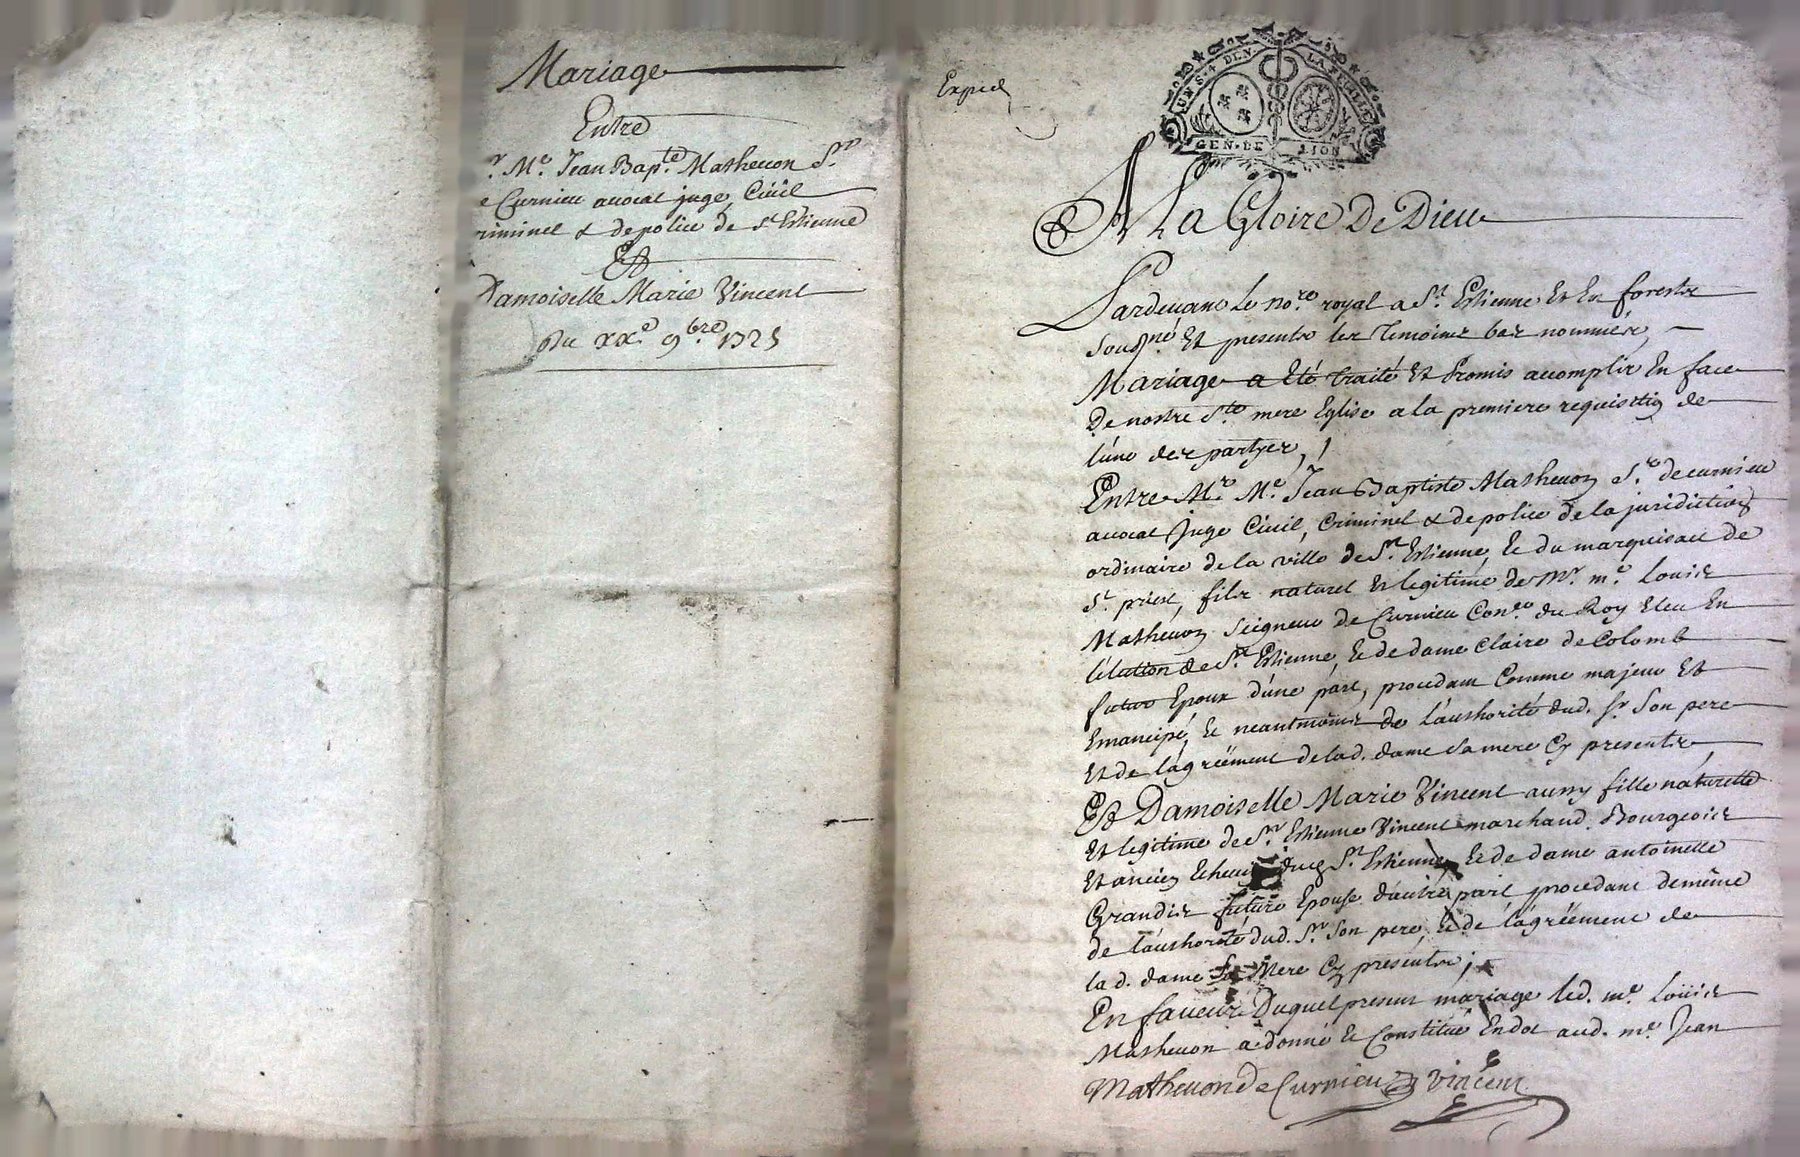 Mariage
Entre
r. Me. Jean Bapte. Matheuon Sr
e Curnieu auocat juge Ciuil
riminel & de police de st Estienne
Et
Damoiselle Marie Vincent
Du xxe. 9bre. 1725
Exped
UN. S. 4 DEN. LA FEUILLE
GEN. DE LION
A La Gloire De Dieu
Pardeuant Le nore. royal a St. Estienne Et En forestz
sousné. Et presents les Temoins bas nommés,
Mariage a Eté traité Et Promis accomplir En face
De nostre Ste. mere Eglise a la premiere requisition de
l'une des partyes,
Entre Mr. Me. Jean Baptiste Matheuon Sr. de curnieu
auocat Juge Ciuil, Criminel & de police de la juridiction
ordinaire de la ville de St. Estienne, Et du marquisat de
St. priest, fils naturel Et legitime de Mr. me. Louis
Matheuon seigneur de Curnieu Coner. du Roy Eleu En
l'élection de St. Estienne, Et de dame Claire de Colomb
futur Epoux d'une part, procedant Comme majeur Et
Emancipé, Et neantmoins de l'authorité dud. sr Son pere
Et de l'agréement de lad. dame sa mere Cy presents,
Et Damoiselle Marie Vincent aussy fille naturelle
Et legitime de Sr. Estienne Vincent marchand Bourgeois
Et ancien Echeuin dud St. Estienne, Et de dame antoinette
Grandis future Epouse d'autre part procedant de même
de l'authorité dud. Sr. Son pere, Et de l'agréement de
lad. dame sa Mere Cy presents;
En faueur Duquel present mariage led. me. Loüis
Matheuon a donné Et Constitué En dot aud. me. Jean
Matheuon de Curnieu Vincent